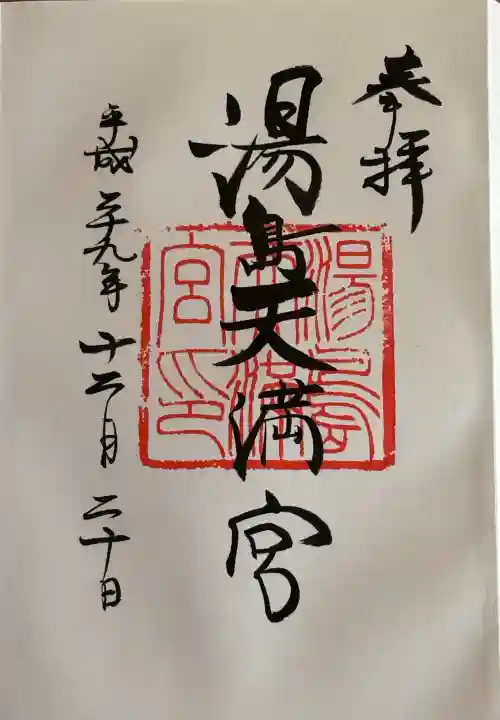 奉拝
湯島天満宮
湯島天満宮印
平成二十九年十二月二十日